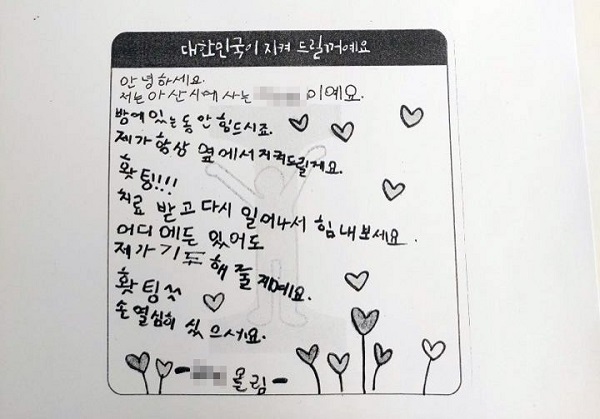 대한민국이 지켜 드릴꺼예요
안녕하세요.
저는 아산시에 사는 이예요.
방에 있는 동안 힘드시죠.
제가 항상 옆에서 지켜드릴게요.
홧팅!!!
치료 받고 다시 일어나서 힘내보세요.
어디에든 있어도
제가 기도해 줄게요.
홧팅
손 열심히 싰으서요.
- 올림 -